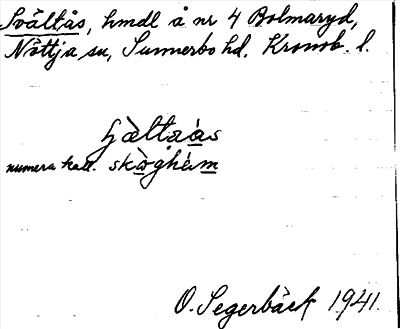 Svältås, hmdl å nr 4 Bolmaryd,
Nöttja sn, Sunnerbo hd. Kronob. l.
numera kall. skò̱ghèm̱
O. Segerbäck 1941.